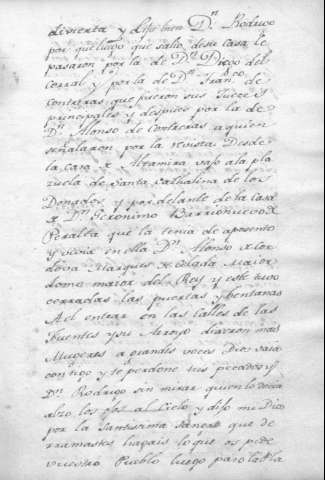 divierta y dijo bien Dn. Rodrigo
por que luego que salio desu casa le
pasaron por la de Dn. Diego del
corral, y por la de Dn. Franco. de
contreras, que fueron sus Jueces
principales y despues por la de
Dn. Alonso de Contreras a quien
señalaron por la revista. Desde
la casa de Altamira vajo ala pla
zuela de Santa Cathalina de los
Donados, y por delante de la casa
de Dn. Geronimo Barrionuevo de
Peralta que la tenia de aposento
y vivia en ella Dn. Alonso de Cor
dova Marques de Celada Maior
domo maior del Rey y este tuvo
cerradas las puertas y bentanas
Al entrar en las calles de las
fuentes y su Arroyo dixeron mas
Mugeres a grandes voces Dios vaia
contigo y te perdone tus pecados y
Dn. Rodrigo sin mirar quien lo decia
alzo los ojos al cielo y dijo mi Dios
por la Santisima sangre que de
rramastes hagais lo que os pide
vuestro Pueblo luego paro la